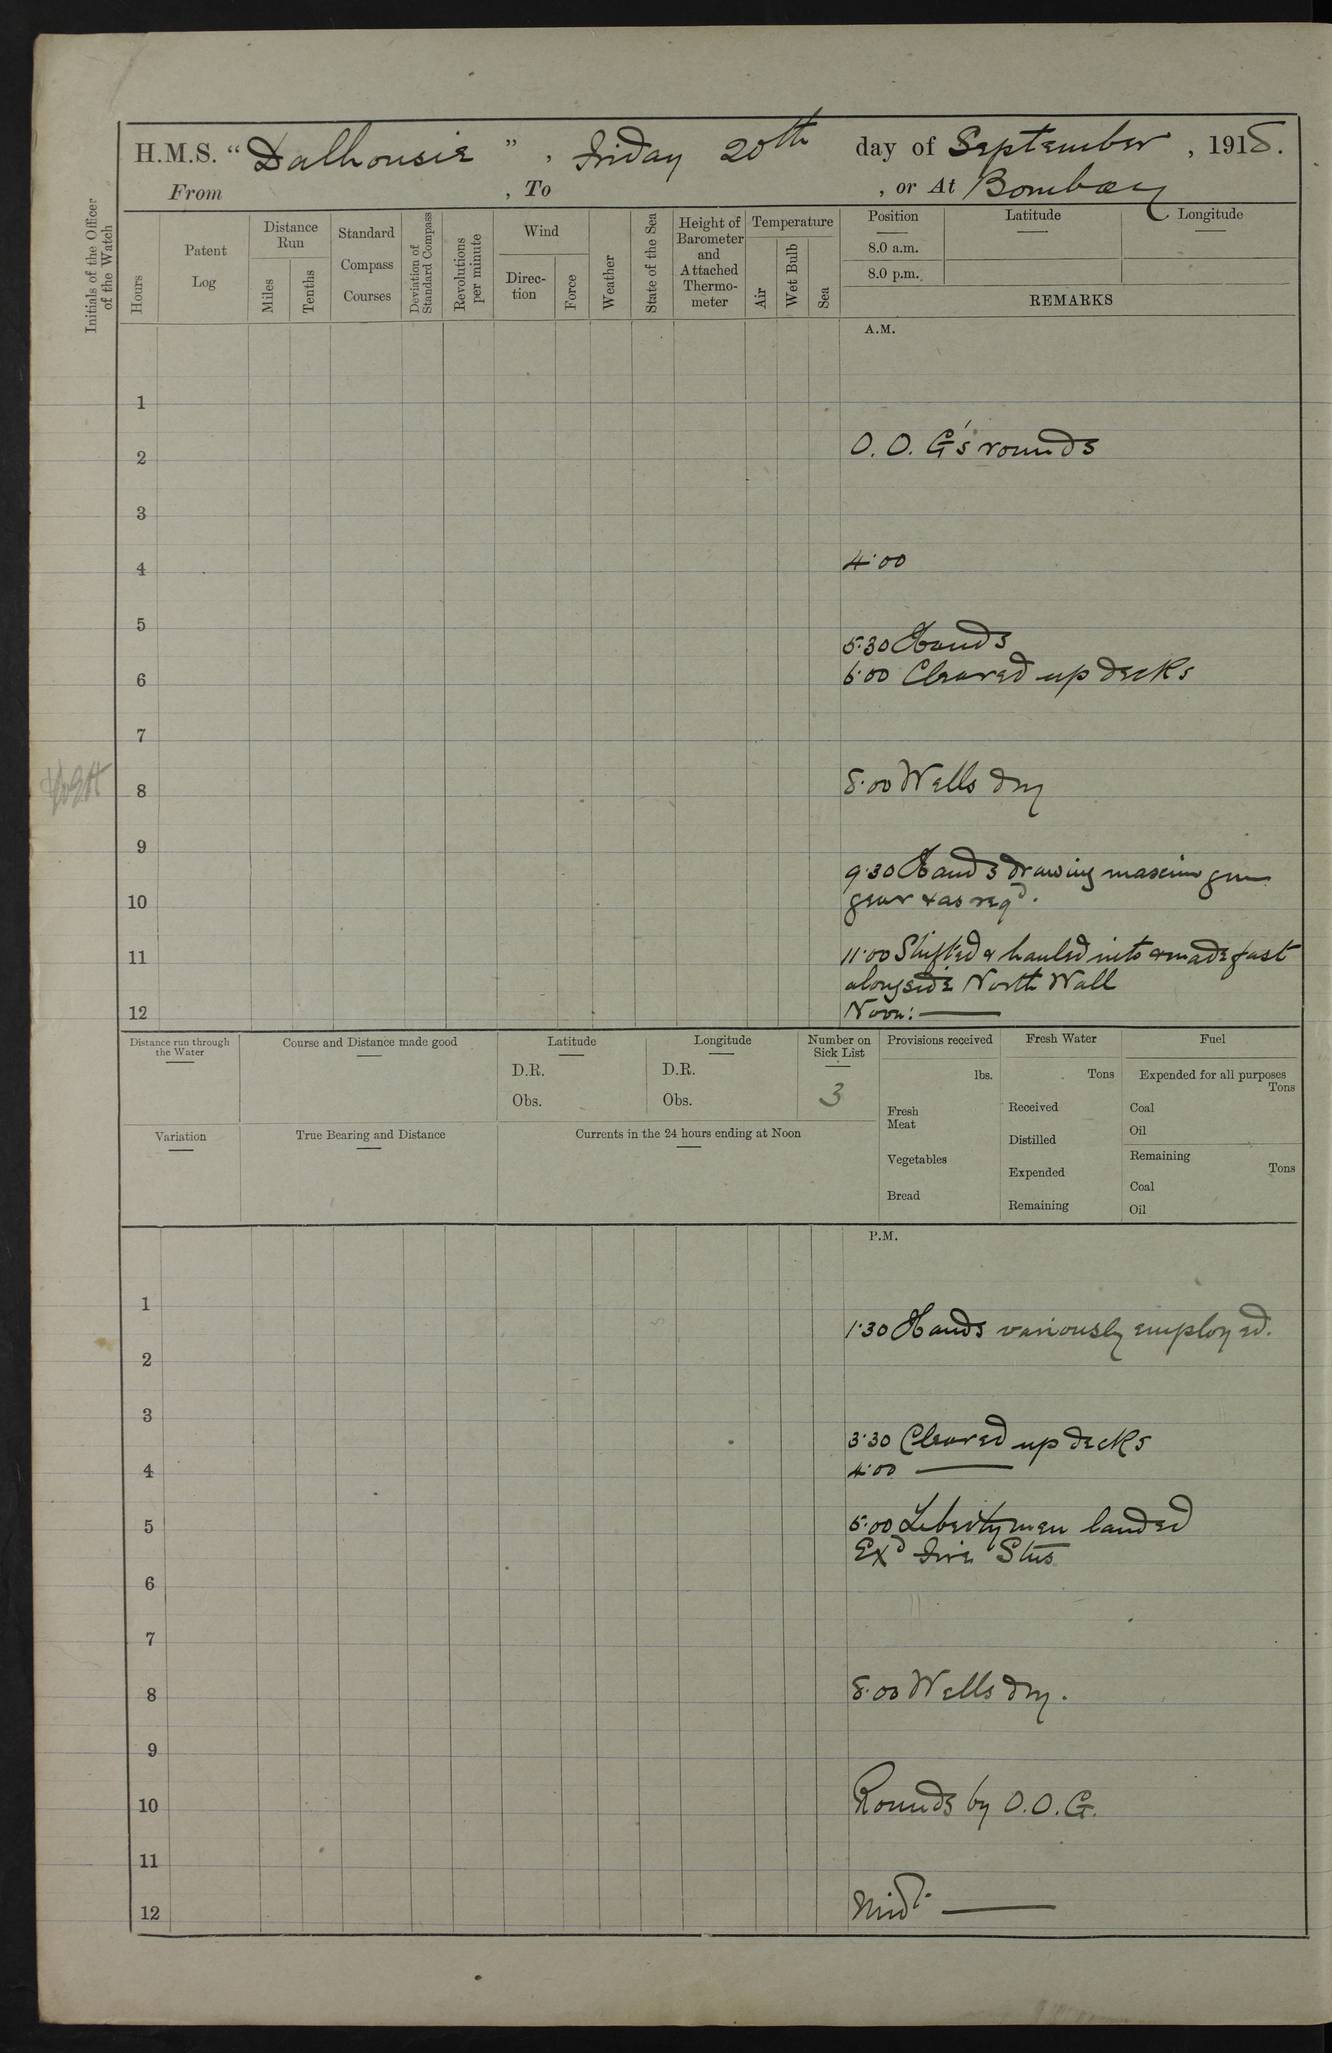 H.M.S. “Dalhousie”, Friday 20th day of September, 1918.
From , To , or At Bombay
Initials of the Officer of the Watch
Hours
Patent Log
Distance Run
Miles
Tenths
Standard Compass Courses
Deviation of Standard Compass
Revolutions per minute
Wind
Direc-tion
Force
Weather
State of the Sea
Height of Barometer and Attached Thermo-meter
Temperature
Air
Wet Bulb
Sea
Position
Latitude
Longitude
8.0 a.m.
8.0 p.m.
REMARKS
A.M.
1
2 O.O.G's rounds
3
4 4.00
5
5.30 Hands
6 6.00 Cleared up decks
7
8 8.00 Wells dry
9
9.30 Hands drawing maxim gun
10 gear & as reqd.
11 11.00 Shifted & hauled into & made fast
alongside North Wall
12 Noon: —
Distance run through the Water
Course and Distance made good
Latitude
D.R.
Obs.
Longitude
D.R.
Obs.
Number on Sick List
3
Provisions received
lbs.
Fresh Meat
Vegetables
Bread
Fresh Water
Tons
Received
Distilled
Expended
Remaining
Fuel
Expended for all purposes
Tons
Coal
Oil
Remaining
Tons
Coal
Oil
Variation
True Bearing and Distance
Currents in the 24 hours ending at Noon
P.M.
1
1.30 Hands variously employed.
2
3
3.30 Cleared up decks
4 4.00 —
5 5.00 Libertymen landed
Exd Fire Stns
6
7
8 8.00 Wells dry.
9
10 Rounds by O.O.G.
11
12 Midt. —